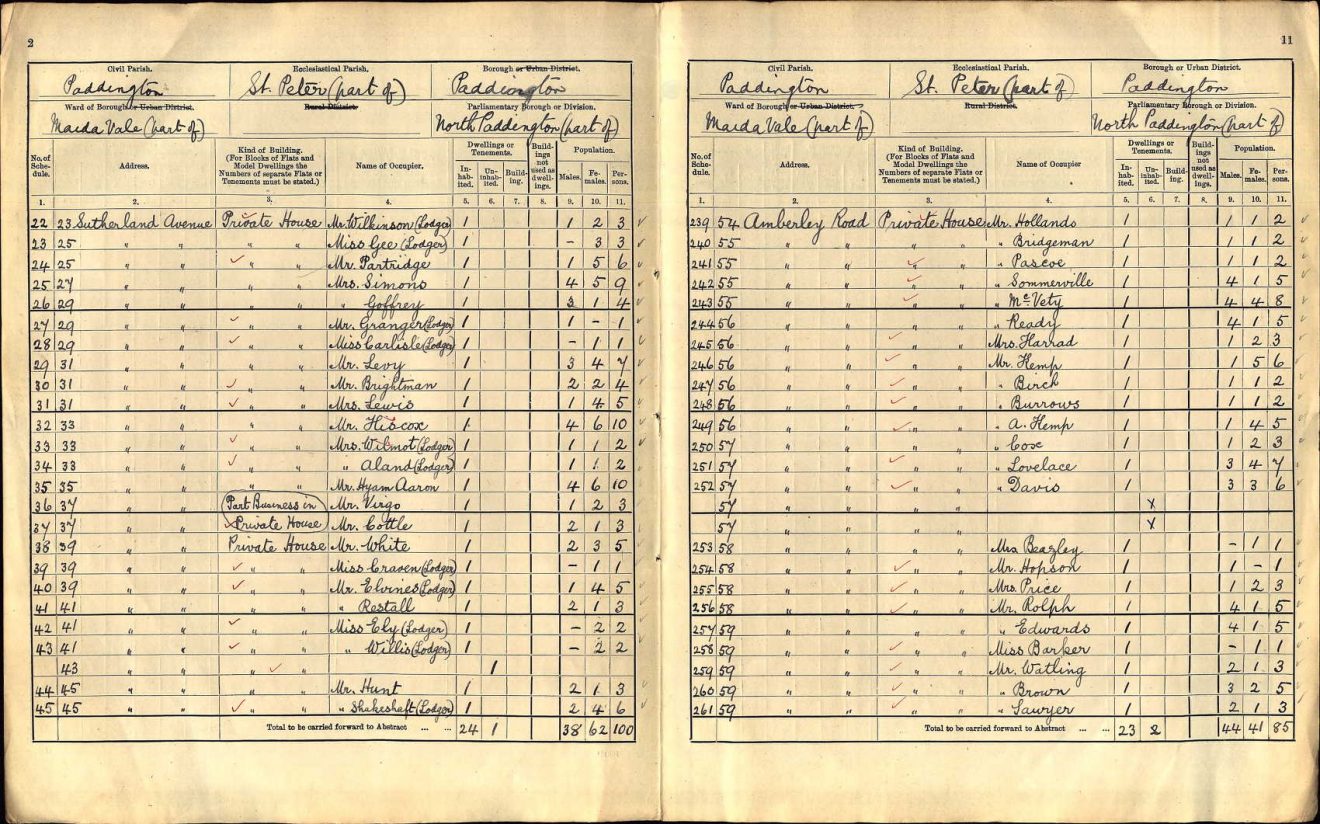 2
Civil Parish. Ecclesiastical Parish. Borough or Urban District.
Paddington St. Peter (part of) Paddington
Ward of Borough or Urban District. Rural District. Parliamentary Borough or Division.
Maida Vale (part of) North Paddington (part of)
No. of Schedule. Address. Kind of Building. (For Blocks of Flats and Model Dwellings the Numbers of separate Flats or Tenements must be stated.) Name of Occupier. Dwellings or Tenements. Inhabited. Uninhabited. Building. Buildings not used as dwellings. Population. Males. Females. Persons.
1. 2. 3. 4. 5. 6. 7. 8. 9. 10. 11.
22 23 Sutherland Avenue Private House Mr. Wilkinson (Lodger) 1 1 2 3
23 25 " " " " Miss Gee (Lodger) 1 - 3 3
24 25 " " " " Mr. Partridge 1 1 5 6
25 27 " " " " Mrs. Simons 1 4 5 9
26 29 " " " " " Goffrey 1 3 1 4
27 29 " " " " Mr. Granger (Lodger) 1 1 - 1
28 29 " " " " Miss Carlisle (Lodger) 1 - 1 1
29 31 " " " " Mr. Levy 1 3 4 7
30 31 " " " " Mr. Brightman 1 2 2 4
31 31 " " " " Mrs. Lewis 1 1 4 5
32 33 " " " " Mr. Hiscox 1 4 6 10
33 33 " " " " Mrs. Wilmot (Lodger) 1 1 1 2
34 33 " " " " " Aland (Lodger) 1 1 1 2
35 35 " " " " Mr. Hyam Aaron 1 4 6 10
36 37 " " Part Business in Mr. Virgo 1 1 2 3
37 37 " " Private House Mr. Cottle 1 2 1 3
38 39 " " Private House Mr. White 1 2 3 5
39 39 " " " " Miss Craven (Lodger) 1 - 1 1
40 39 " " " " Mr. Elvines (Lodger) 1 1 4 5
41 41 " " " " " Restall 1 2 1 3
42 41 " " " " Miss Ely (Lodger) 1 - 2 2
43 41 " " " " " Willis (Lodger) 1 - 2 2
43 " " " " 1
44 45 " " " " Mr. Hunt 1 2 1 3
45 45 " " " " " Shakeshaft (Lodger) 1 2 4 6
Total to be carried forward to Abstract ... ... 24 1 38 62 100
11
Civil Parish. Ecclesiastical Parish. Borough or Urban District.
Paddington St. Peter (part of) Paddington
Ward of Borough or Urban District. Rural District. Parliamentary Borough or Division.
Maida Vale (part of) North Paddington (part of)
No. of Schedule. Address. Kind of Building. (For Blocks of Flats and Model Dwellings the Numbers of separate Flats or Tenements must be stated.) Name of Occupier Dwellings or Tenements. Inhabited. Uninhabited. Building. Buildings not used as dwellings. Population. Males. Females. Persons.
1. 2. 3. 4. 5. 6. 7. 8. 9. 10. 11.
239 54 Amberley Road Private House Mr. Hollands 1 1 1 2
240 55 " " " " " Bridgeman 1 1 1 2
241 55 " " " " " Pascoe 1 1 1 2
242 55 " " " " " Sommerville 1 4 1 5
243 55 " " " " " McVety 1 4 4 8
244 56 " " " " " Ready 1 4 1 5
245 56 " " " " Mrs. Harrad 1 1 2 3
246 56 " " " " Mr. Hemp 1 1 5 6
247 56 " " " " " Birch 1 1 1 2
248 56 " " " " " Burrows 1 1 1 2
249 56 " " " " " A. Hemp 1 1 4 5
250 57 " " " " " Cox 1 1 2 3
251 57 " " " " " Lovelace 1 3 4 7
252 57 " " " " " Davis 1 3 3 6
57 " " " " X
57 " " " " X
253 58 " " " " Mrs. Beazley 1 - 1 1
254 58 " " " " Mr. Hopson 1 1 - 1
255 58 " " " " Mrs. Price 1 1 2 3
256 58 " " " " Mr. Rolph 1 4 1 5
257 59 " " " " " Edwards 1 4 1 5
258 59 " " " " Miss Barker 1 - 1 1
259 59 " " " " Mr. Watling 1 2 1 3
260 59 " " " " " Brown 1 3 2 5
261 59 " " " " " Sawyer 1 2 1 3
Total to be carried forward to Abstract ... ... 23 2 44 41 85